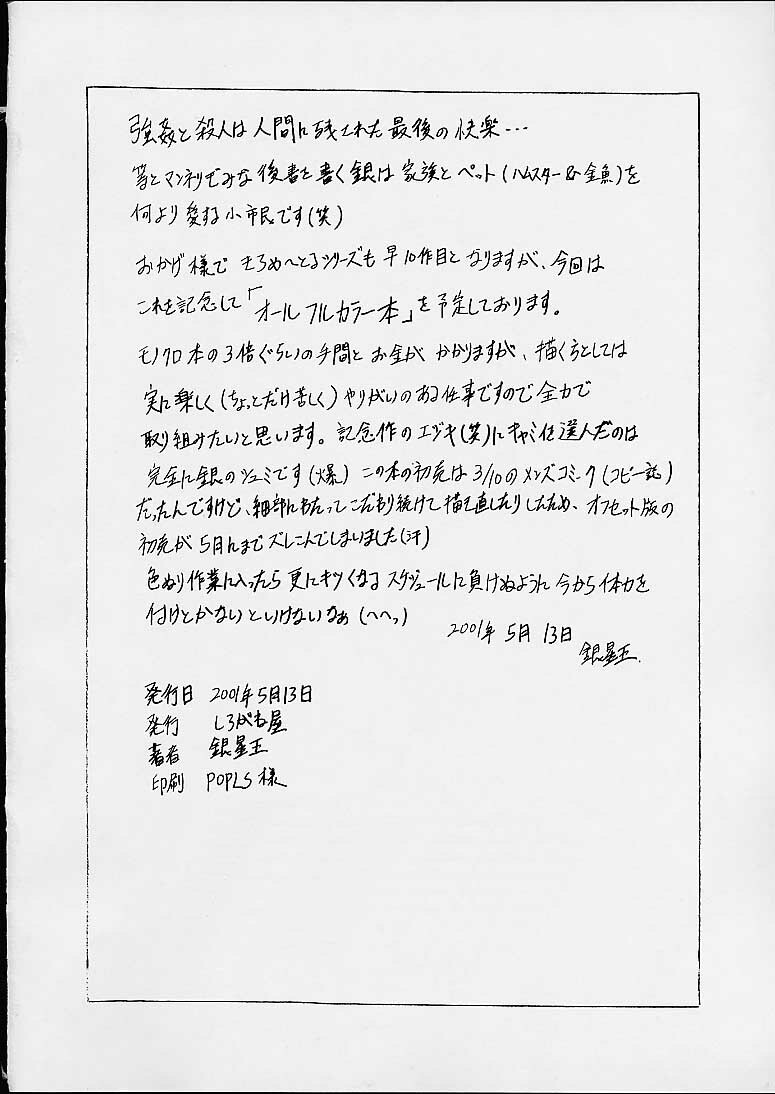 強姦と殺人は人間に残された最後の快楽…
等とマンネリぎみな後書を書く銀は家族とペット(ハムスター&金魚)を
何より愛する小市民です(笑)
おかげ様で モろめ〜とるシリーズも早10作目となりますが、今回は
これを記念して「オールフルカラー本」を予定しております。
モノクロ本の3倍ぐらいの手間とお金がかかりますが、描く方としては
実に楽しく(ちょっとだけ苦しく)やりがいのある仕事ですので全力で
取り組みたいと思います。記念作のエジキ(笑)にキャミイを選んだのは
完全に銀のシュミです(爆) この本の初売は3/10のメンズコミーク(コピー誌)
だったんですけど、細部にわたってこだわり続けて描き直したりしたため、オフセット版の
初売が5月にまでズレこんでしまいました(汗)
色ぬり作業に入ったら更にキツくなるスケジュールに負けぬように今から体力を
付けとかないといけないなぁ(へへっ)
2001年5月13日
銀星王.
発行日 2001年5月13日
発行 しろがね屋
著者 銀星王
印刷 POPLS様